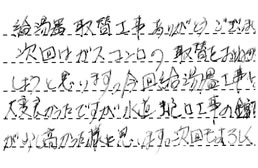 給湯器取替工事ありがとうござい
次回はガスコンロの取替をお
しようと思います。今回給湯器工事
大変良かったですが水道蛇口工事の
が少し高かった様に思います。次回もよろしく